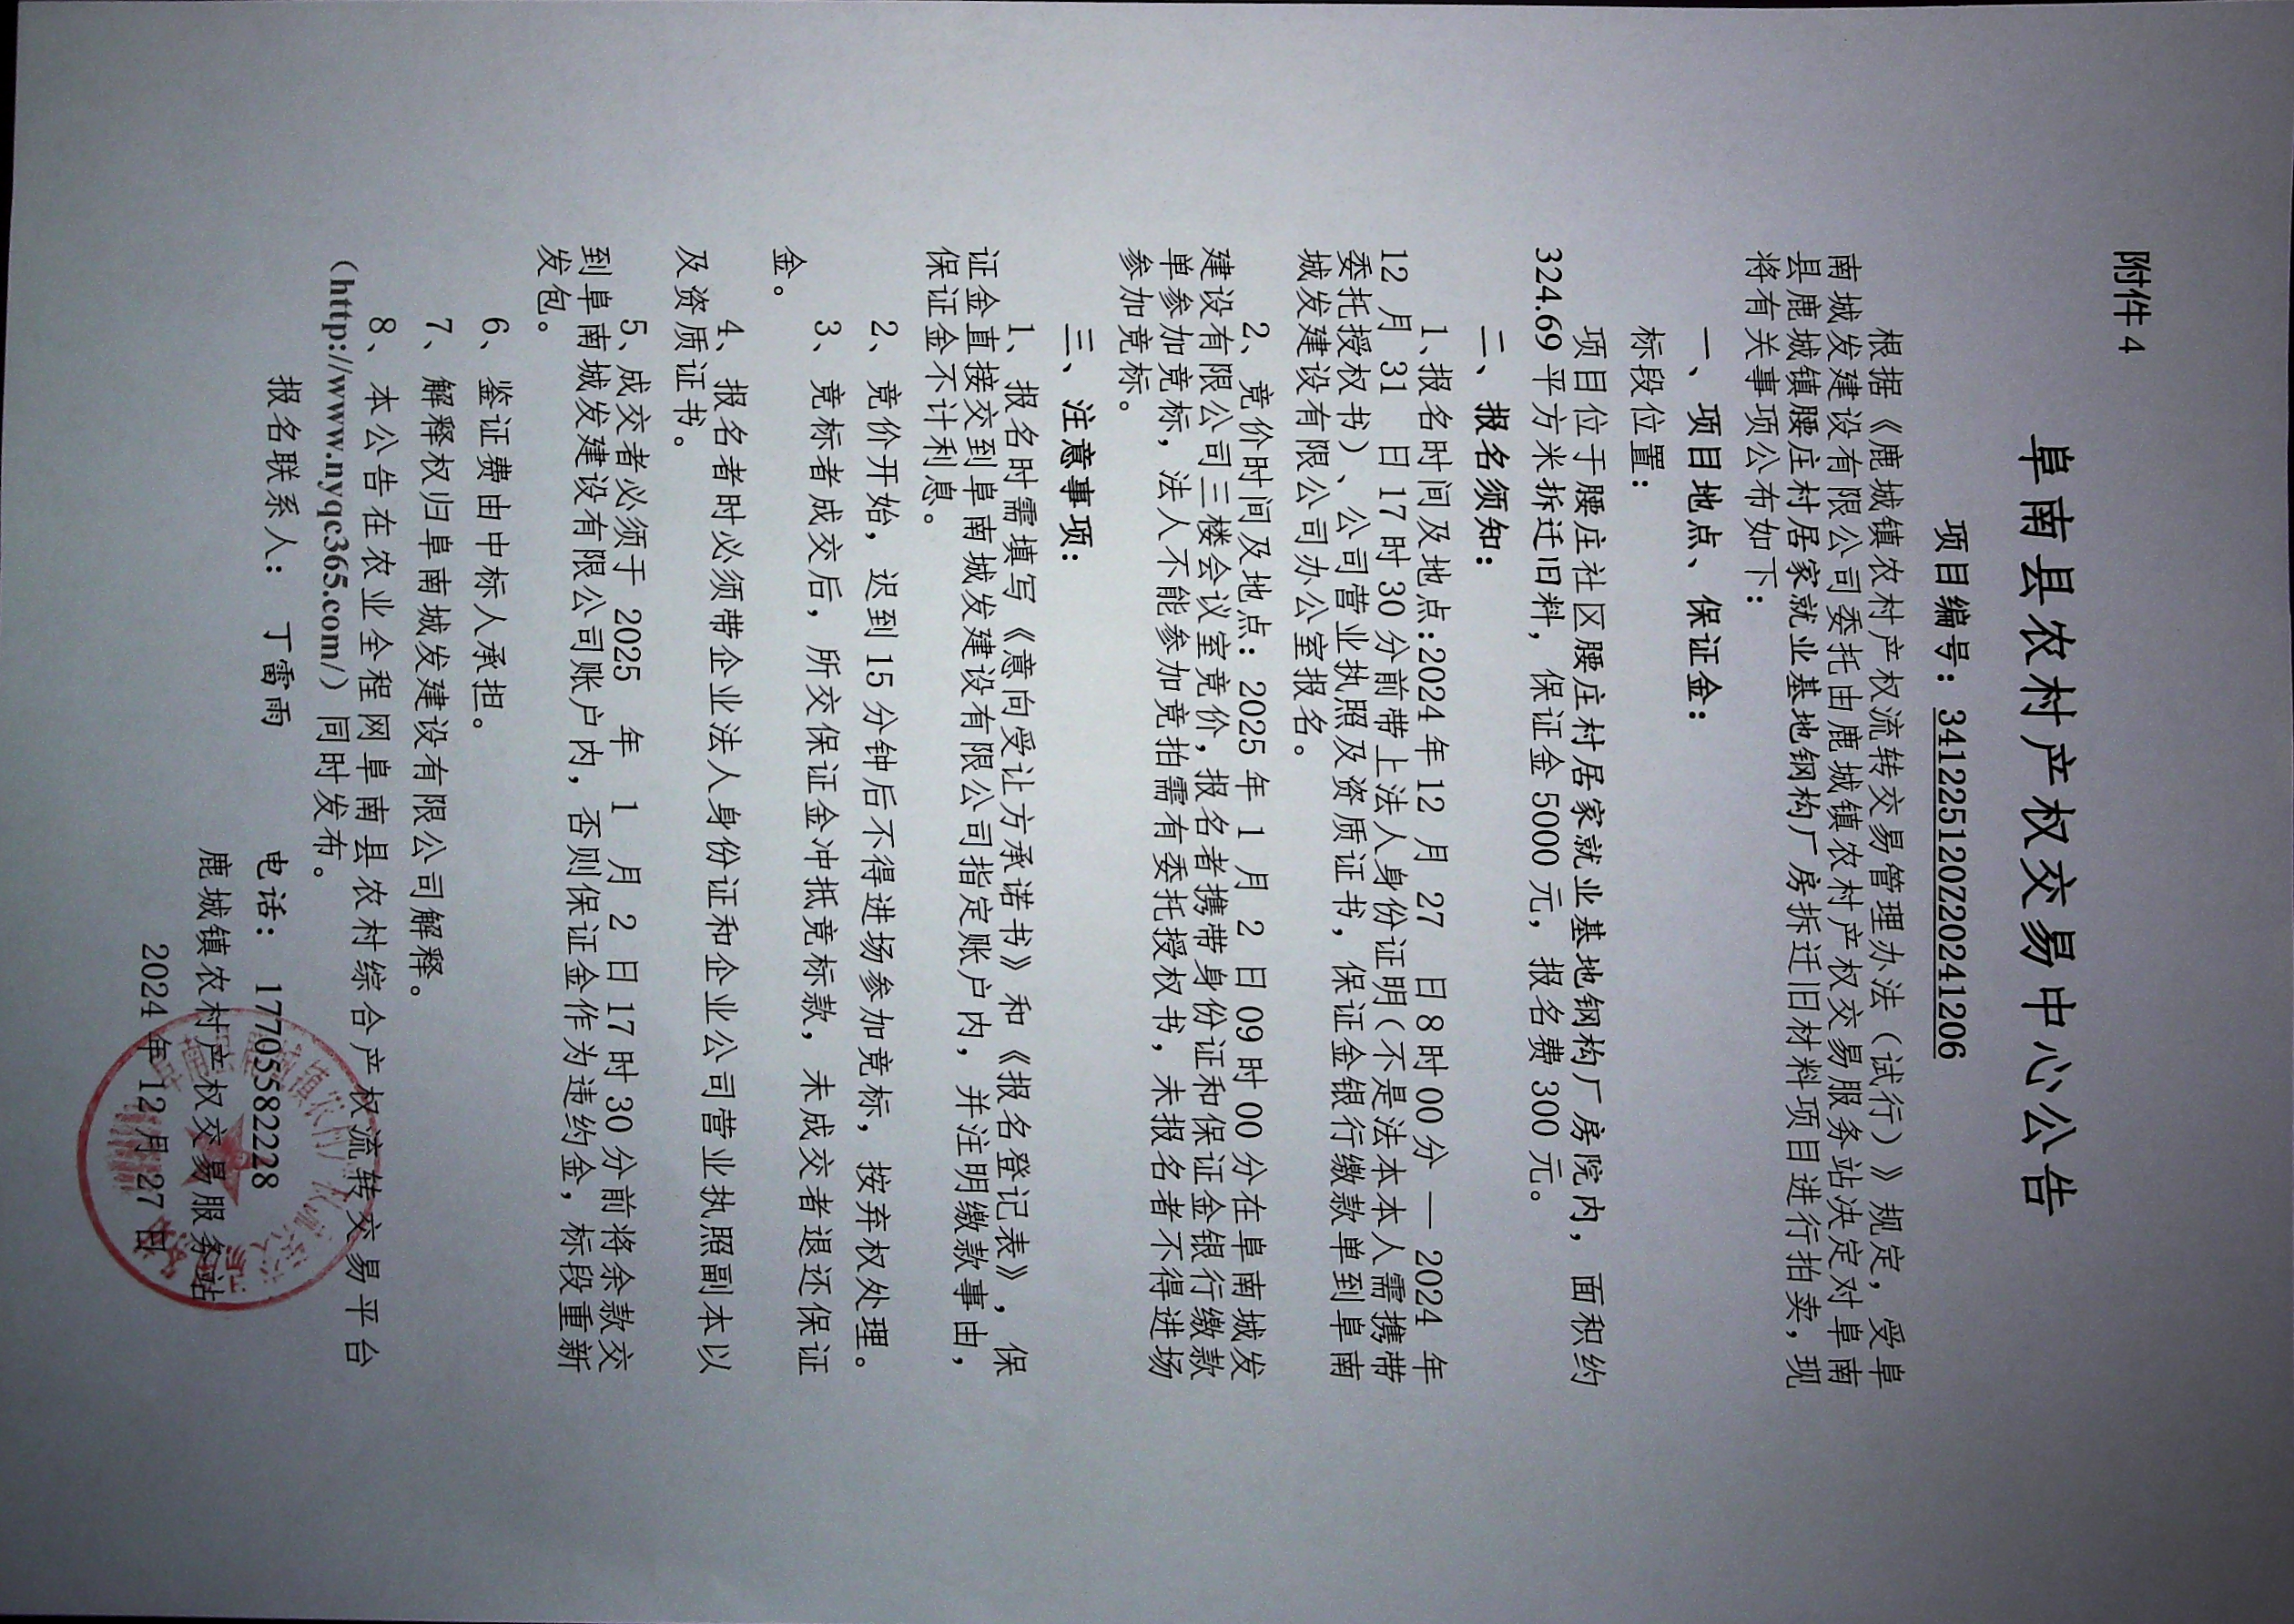 附件 4
阜南县农村产权交易中心公告
项目编号：341225120Z20241206
根据《鹿城镇农村产权流转交易管理办法（试行）》规定，受阜
南城发建设有限公司委托由鹿城镇农村产权交易服务站决定对阜南
县鹿城镇腰庄村居家就业基地钢构厂房拆迁旧材料项目进行拍卖，现
将有关事项公布如下：
一、项目地点、保证金：
标段位置：
项目位于腰庄社区腰庄村居家就业基地钢构厂房院内，面积约
324.69 平方米拆迁旧料，保证金 5000 元，报名费 300 元。
二、报名须知：
1、报名时间及地点:2024 年 12 月 27 日 8 时 00 分 — 2024 年
12 月 31 日 17 时 30 分前带上法人身份证明（不是法本本人需携带
委托授权书）、公司营业执照及资质证书，保证金银行缴款单到阜南
城发建设有限公司办公室报名。
2、竞价时间及地点：2025 年 1 月 2 日 09 时 00 分在阜南城发
建设有限公司三楼会议室竞价，报名者携带身份证和保证金银行缴款
单参加竞标，法人不能参加竞拍需有委托授权书，未报名者不得进场
参加竞标。
三、注意事项：
1、报名时需填写《意向受让方承诺书》和《报名登记表》，保
证金直接交到阜南城发建设有限公司指定账户内，并注明缴款事由，
保证金不计利息。
2、竞价开始，迟到 15 分钟后不得进场参加竞标，按弃权处理。
3、竞标者成交后，所交保证金冲抵竞标款，未成交者退还保证
金。
4、报名者时必须带企业法人身份证和企业公司营业执照副本以
及资质证书。
5、成交者必须于 2025 年 1 月 2 日 17 时 30 分前将余款交
到阜南城发建设有限公司账户内，否则保证金作为违约金，标段重新
发包。
6、鉴证费由中标人承担。
7、解释权归阜南城发建设有限公司解释。
8、本公告在农业全程网阜南县农村综合产权流转交易平台
（http://www.nyqc365.com/）同时发布。
报名联系人：丁雷雨 电话：17705582228
鹿城镇农村产权交易服务站
2024 年 12 月 27 日